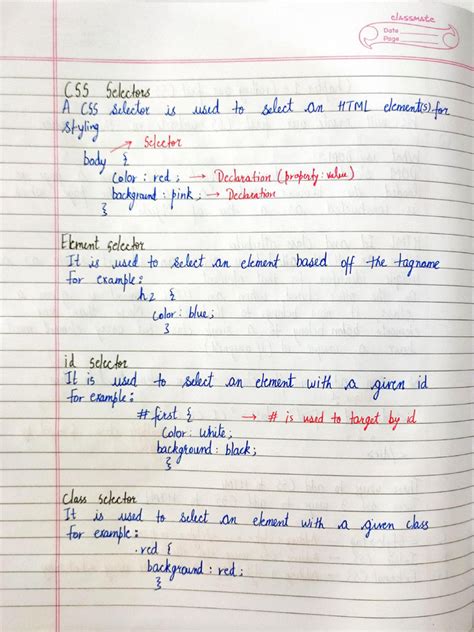 classmate
Date
Page
CSS Selectors
A CSS selector is used to select an HTML element(s) for
styling
→ Selector
body {
color : red ; → Declaration (property : value)
background : pink ; → Declaration
}
Element selector
It is used to select an element based off the tagname
For example :
h2 {
color : blue ;
}
id selector
It is used to select an element with a given id
For example :
# first { → # is used to target by id
color : white ;
background : black ;
}
Class selector
It is used to select an element with a given class
For example :
.red {
background : red ;
}